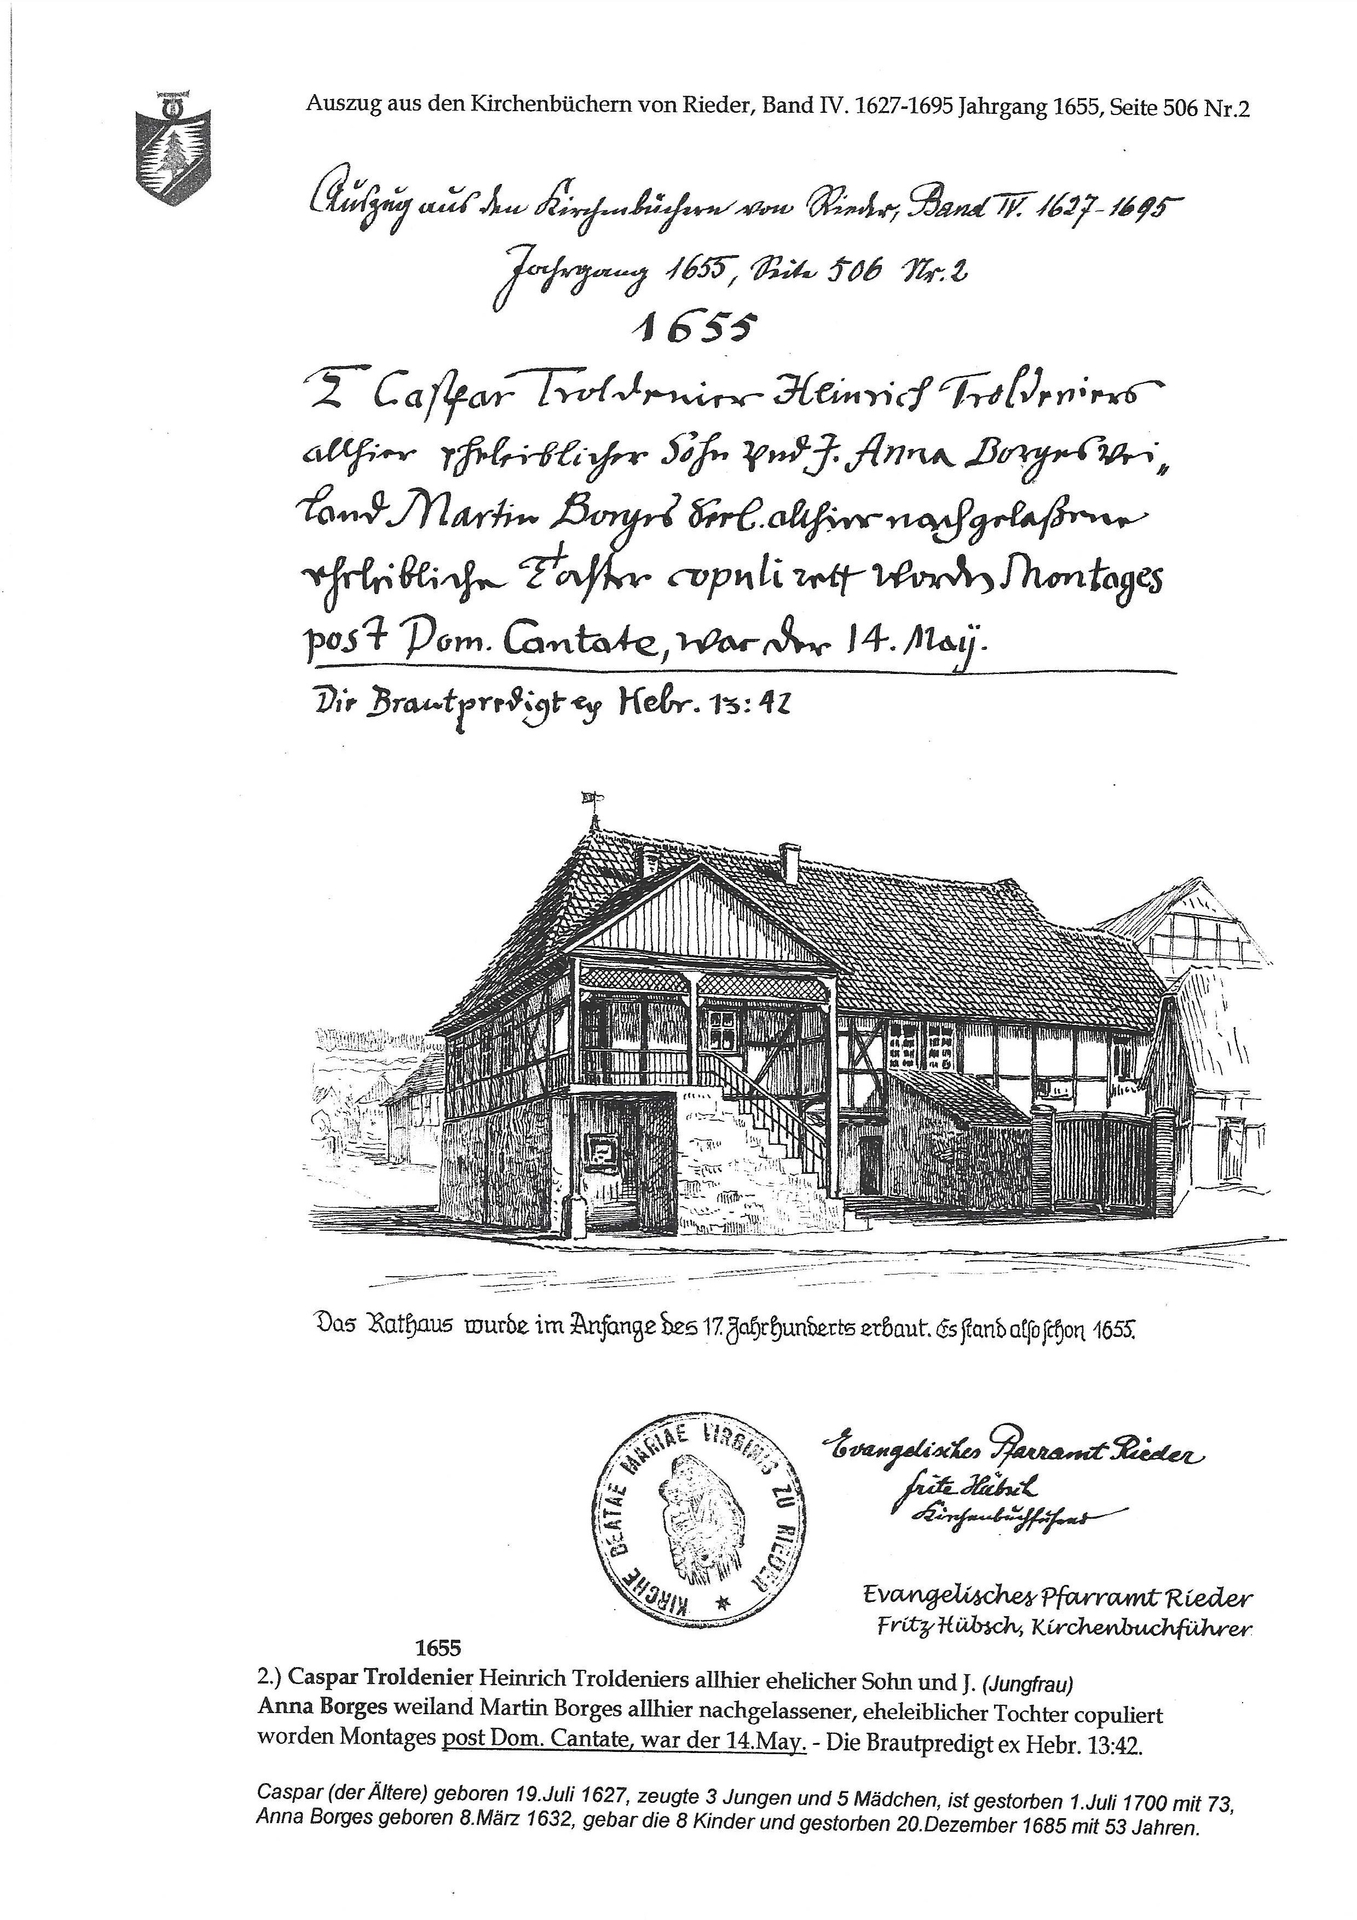 Auszug aus den Kirchenbüchern von Rieder, Band IV. 1627-1695 Jahrgang 1655, Seite 506 Nr.2
Auszug aus den Kirchenbüchern von Rieder, Band IV. 1627-1695
Jahrgang 1655, Seite 506 Nr. 2
1655
2 Caspar Troldenier Heinrich Troldeniers
allhier eheleiblicher Sohn vnd J. Anna Borges wei„
land Martin Borges Seel. althier nachgelaßene
eheleibliche Tochter copulirett worden Montages
post Dom. Cantate, war der 14. Maÿ.
Die Brautpredigt ex Hebr. 13:42
Das Rathaus wurde im Anfange des 17. Jahrhunderts erbaut. Es stand also schon 1655.
KIRCHE BEATAE MARIAE VIRGINIS ZU RIEDER
Evangelisches Pfarramt Rieder
Fritz Hübsch
Kirchenbuchführer
Evangelisches Pfarramt Rieder
Fritz Hübsch, Kirchenbuchführer
1655
2.) Caspar Troldenier Heinrich Troldeniers allhier ehelicher Sohn und J. (Jungfrau)
Anna Borges weiland Martin Borges allhier nachgelassener, eheleiblicher Tochter copuliert
worden Montages post Dom. Cantate, war der 14.May. - Die Brautpredigt ex Hebr. 13:42.
Caspar (der Ältere) geboren 19.Juli 1627, zeugte 3 Jungen und 5 Mädchen, ist gestorben 1.Juli 1700 mit 73,
Anna Borges geboren 8.März 1632, gebar die 8 Kinder und gestorben 20.Dezember 1685 mit 53 Jahren.